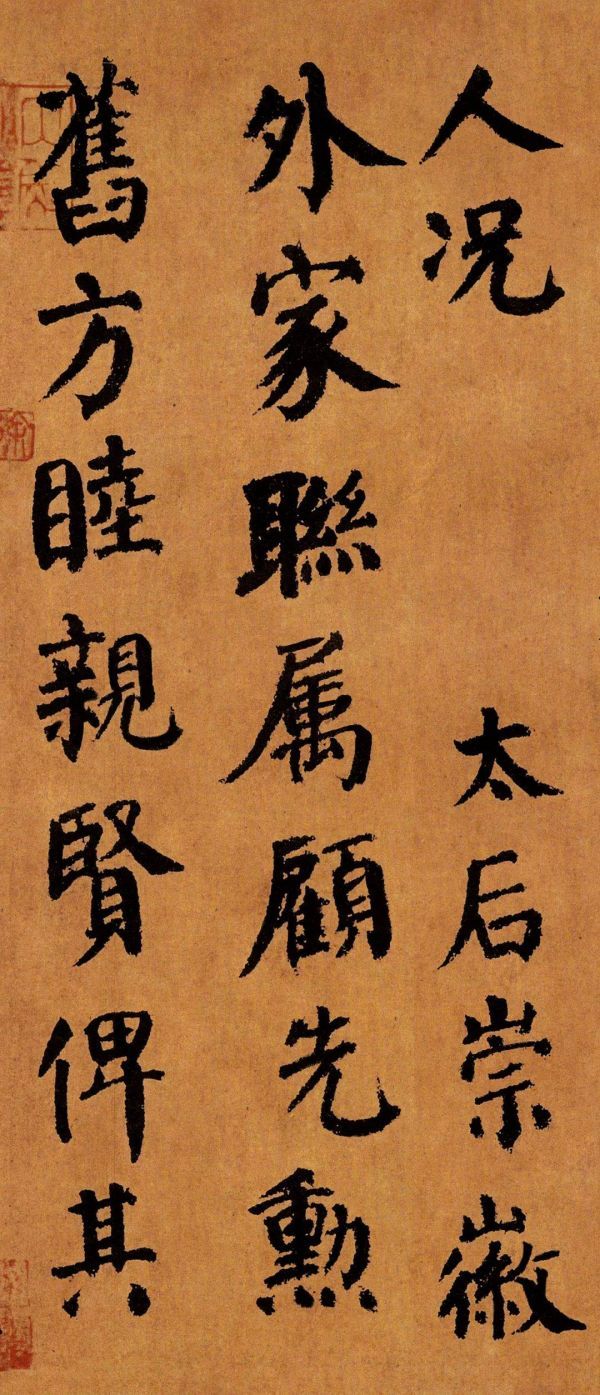 人况 太后崇徽
外家聯属顧先勳
舊方睦親賢俾其